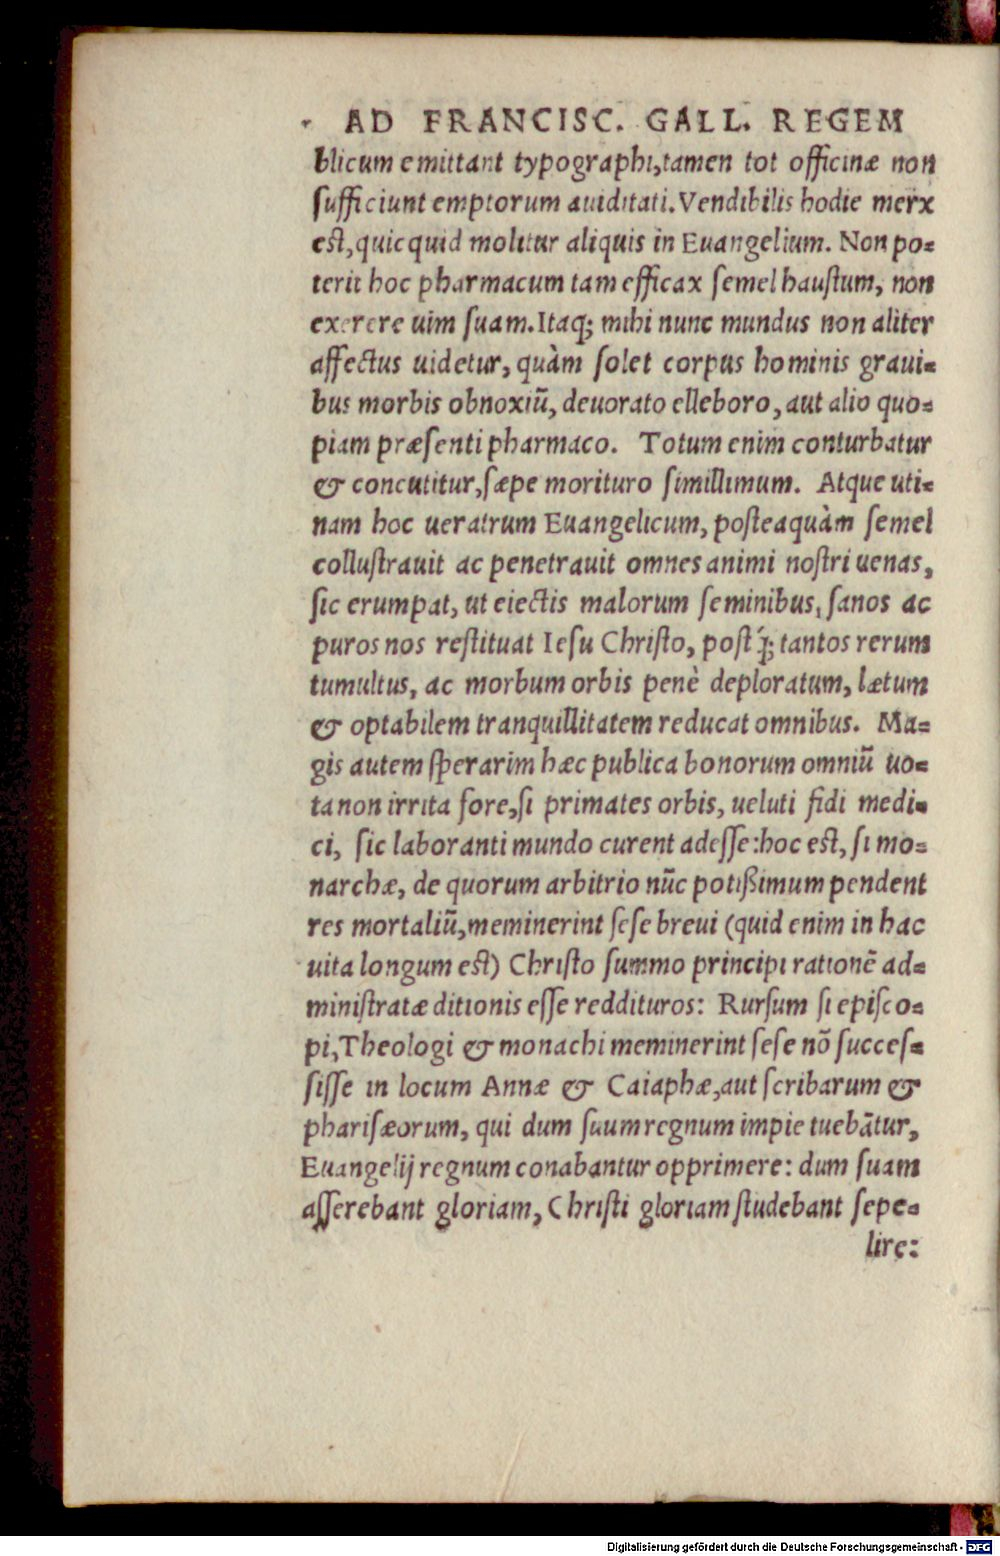 AD FRANCISC. GALL. REGEM
blicum emittant typographi, tamen tot officinæ non
ſufficiunt emptorum auiditati. Vendibilis hodie merx
eſt, quicquid molitur aliquis in Euangelium. Non po=
terit hoc pharmacum tam efficax ſemel hauſtum, non
exerere uim ſuam. Itaq; mihi nunc mundus non aliter
affectus uidetur, quàm ſolet corpus hominis graui=
bus morbis obnoxiũ, deuorato elleboro, aut alio quo=
piam præſenti pharmaco. Totum enim conturbatur
& concutitur, ſæpe morituro ſimillimum. Atque uti=
nam hoc ueratrum Euangelicum, poſteaquàm ſemel
colluſtrauit ac penetrauit omnes animi noſtri uenas,
ſic erumpat, ut eiectis malorum ſeminibus, ſanos ac
puros nos reſtituat Ieſu Chriſto, poſt q́; tantos rerum
tumultus, ac morbum orbis penè deploratum, lætum
& optabilem tranquillitatem reducat omnibus. Ma=
gis autem ſperarim hæc publica bonorum omniũ uo=
ta non irrita fore, ſi primates orbis, ueluti fidi medi=
ci, ſic laboranti mundo curent adeſſe: hoc eſt, ſi mo=
narchæ, de quorum arbitrio nũc potißimum pendent
res mortaliũ, meminerint ſeſe breui (quid enim in hac
uita longum eſt) Chriſto ſummo principi rationẽ ad=
miniſtratæ ditionis eſſe reddituros: Rurſum ſi epiſco=
pi, Theologi & monachi meminerint ſeſe nõ ſucceſ=
ſiſſe in locum Annæ & Caiaphæ, aut ſcribarum &
phariſæorum, qui dum ſuum regnum impie tuebãtur,
Euangelij regnum conabantur opprimere: dum ſuam
aſſerebant gloriam, Chriſti gloriam ſtudebant ſepe=
lire:
Digitalisierung gefördert durch die Deutsche Forschungsgemeinschaft - DFG